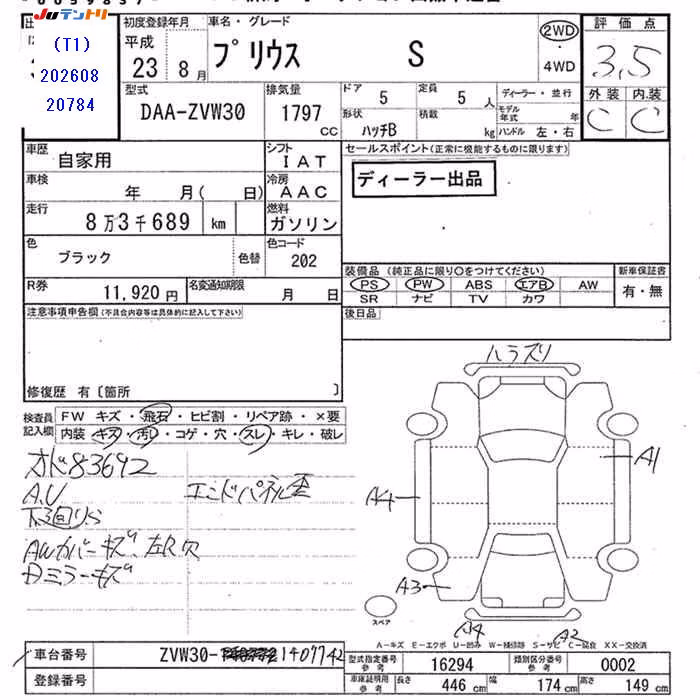 Juテントリ
(T1)
202608
20784
初度登録年月
平成
23 8月
車名・グレード
プリウス S
2WD
・
4WD
評価点
3.5
外装 内装
C C
型式
DAA-ZVW30
排気量
1797
CC
ドア 5
定員 5 人
形状 ハッチB
積載 kg
ディーラー・並行
モデル年式 年
ハンドル 左・右
車歴
自家用
シフト
IAT
車検
年 月( 日)
冷房
AAC
走行
8万3千689 km
燃料
ガソリン
色
ブラック
色替
色コード
202
R券
11,920円
名変通知期限
月 日
セールスポイント(正常に機能するものに限ります)
ディーラー出品
装備品(純正品に限り○をつけてください)
PS PW ABS エアB AW
SR ナビ TV カワ
新車保証書
有・無
後日品
注意事項申告欄(不具合内容等は具体的に記入して下さい)
修復歴 有〔箇所 〕
検査員記入欄
FW キズ・飛石・ヒビ割・リペア跡・×要
内装 キズ・汚レ・コゲ・穴・スレ・キレ・破レ
オド83692
A.U
エンドパネル歪
下回りS
AWカバーキズ、左R欠
Dミラーキズ
ハラズリ
A1
A4
A3
A4
A2
スペア
A-キズ E-エクボ U-凹み W-補修跡 S-サビ C-腐食 XX-交換済
車台番号
ZVW30-1407742
登録番号
型式指定番号
参考
16294
類別区分番号
参考
0002
車庫証明用
参考
長さ 446 cm
幅 174 cm
高さ 149 cm